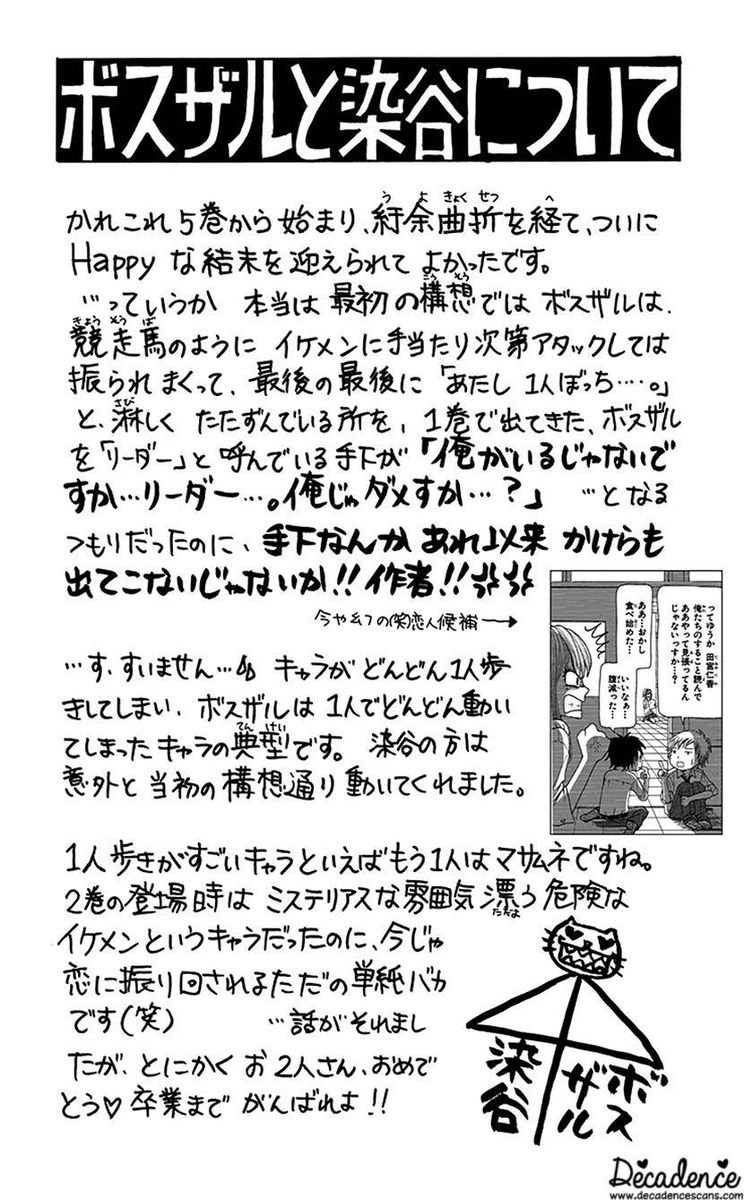 ボスザルと染谷について
かれこれ5巻から始まり、紆余曲折を経て、ついに
Happyな結末を迎えられてよかったです。
…っていうか 本当は最初の構想ではボスザルは、
競走馬のようにイケメンに手当たり次第アタックしては
振られまくって、最後の最後に「あたし1人ぼっち……。」
と、淋しくたたずんでいる所を、1巻で出てきた、ボスザル
を「リーダー」と呼んでいる手下が「俺がいるじゃないで
すか…リーダー…。俺じゃダメすか…?」 …となる
つもりだったのに、手下なんかあれ以来かけらも
出てこないじゃないか!!作者!!
今や幻の(笑)恋人候補→
ってゆうか 田宮仁香
俺たちのすること読んで
ああやって見張ってるん
じゃないっすか…?
ああ…おかし
食べ始めた…
いいなぁ…
腹減った…
…す、すいません… キャラがどんどん1人歩
きしてしまい、ボスザルは1人でどんどん動い
てしまったキャラの典型です。 染谷の方は
意外と当初の構想通り動いてくれました。
1人歩きがすごいキャラといえばもう1人はマサムネですね。
2巻の登場時はミステリアスな雰囲気漂う危険な
イケメンというキャラだったのに、今じゃ
恋に振り回されるただの単純バカ
です(笑) …話がそれまし
たが、とにかくお2人さん、おめで
とう♡卒業までがんばれよ!!
ボスザル
染谷
Decadence
www.decadencescans.com